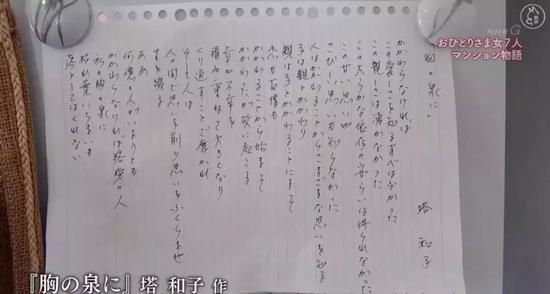 NHK G
おひとりさま女7人
マンション物語
「胸の泉に」
塔 和子
かかわらなければ
この愛しさを知るすべはなかった
この親しさは湧かなかった
この大らかな依存の安らいは得られなかった
この甘い思いや
さびしい思いも知らなかった
人はかかわることからさまざまな思いを知る
子は親とかかわり
親は子とかかわることによって
恋も友情も
かかわることから始まって
かかわったが故に起こる
幸や不幸を
積み重ねて大きくなり
くり返すことで磨かれ
そして人は
人の間で思いを削り思いをふくらませ
生を綴る
ああ
何億の人がいようとも
かかわらなければ路傍の人
私の胸の泉に
枯れ葉いちまいも
落としてはくれない
『胸の泉に』 塔 和子 作